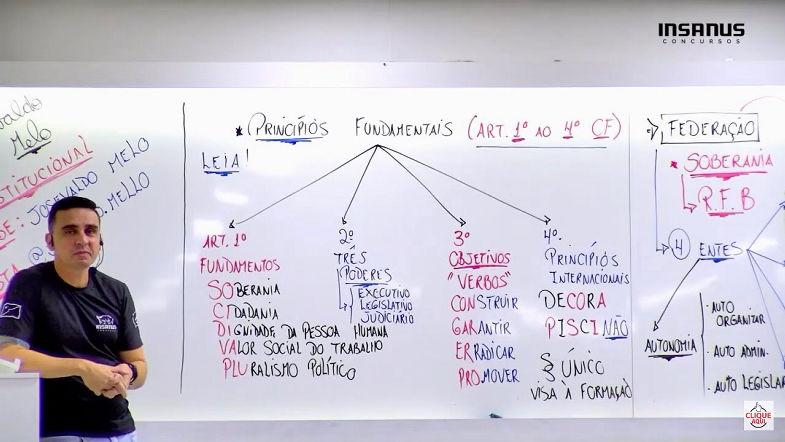 INSANUS
CONCURSOS
Melo
JOSEVALDO MELO
MELLO
* PRINCÍPIOS FUNDAMENTAIS (ART. 1º AO 4º CF)
LEIA!
ART. 1º
FUNDAMENTOS
SOBERANIA
CIDADANIA
DIGNIDADE DA PESSOA HUMANA
VALOR SOCIAL DO TRABALHO
PLURALISMO POLÍTICO
2º
TRÊS
PODERES
EXECUTIVO
LEGISLATIVO
JUDICIÁRIO
3º
OBJETIVOS
"VERBOS"
CONSTRUIR
GARANTIR
ERRADICAR
PROMOVER
4º
PRINCÍPIOS
INTERNACIONAIS
DECORA
PISCINÃO
§ ÚNICO
VISA À FORMAÇÃO
FEDERAÇÃO
* SOBERANIA
R.F.B
4 ENTES
AUTONOMIA
· AUTO
ORGANIZAR
· AUTO ADMIN-
· AUTO LEGISLAR
INSANUS
CLIQUE
AQUI